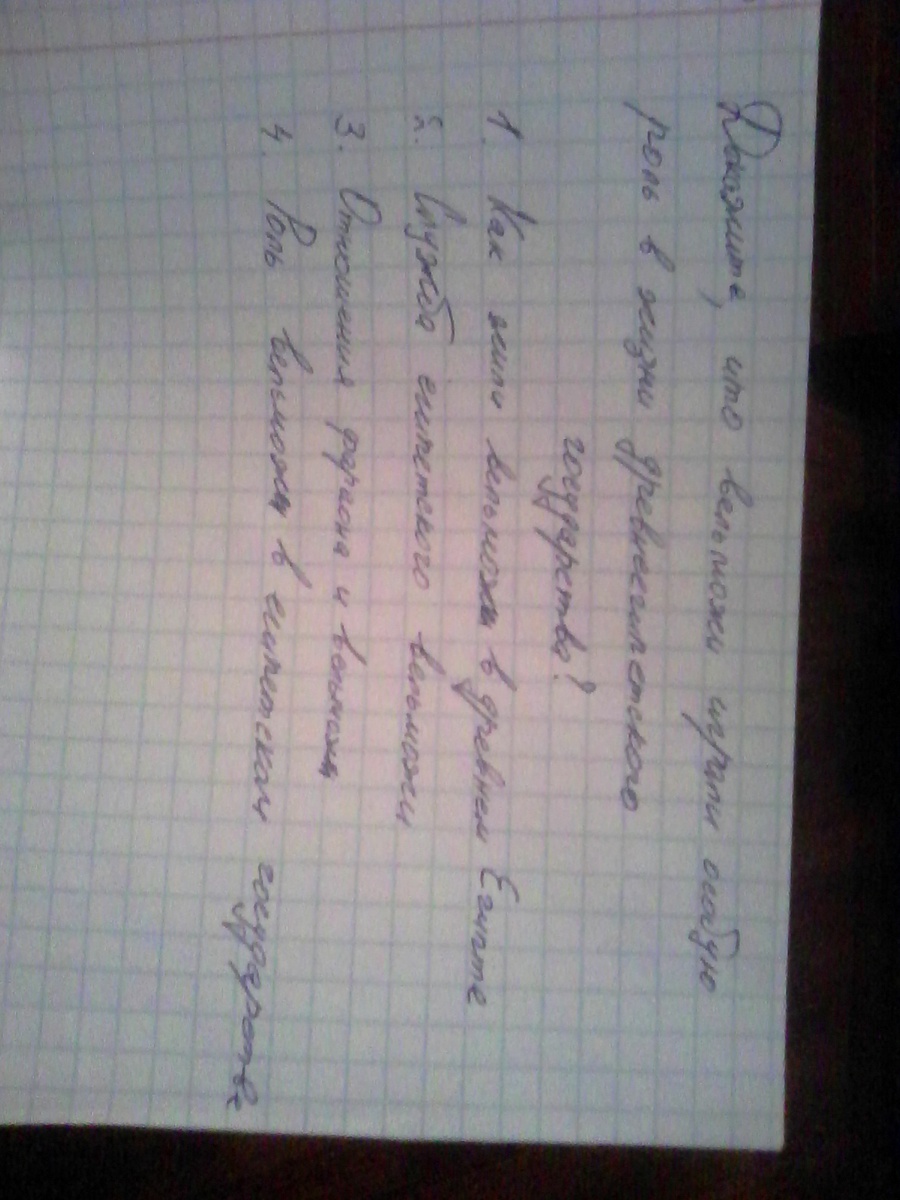 Докажите, что вельможи играли особую
роль в жизни древнеегипетского
государства?
1. Как жили вельможи в древнем Египте
2. Служба египетского вельможи
3. Отношения фараона и вельмож
4. Роль вельмож в египетском государстве